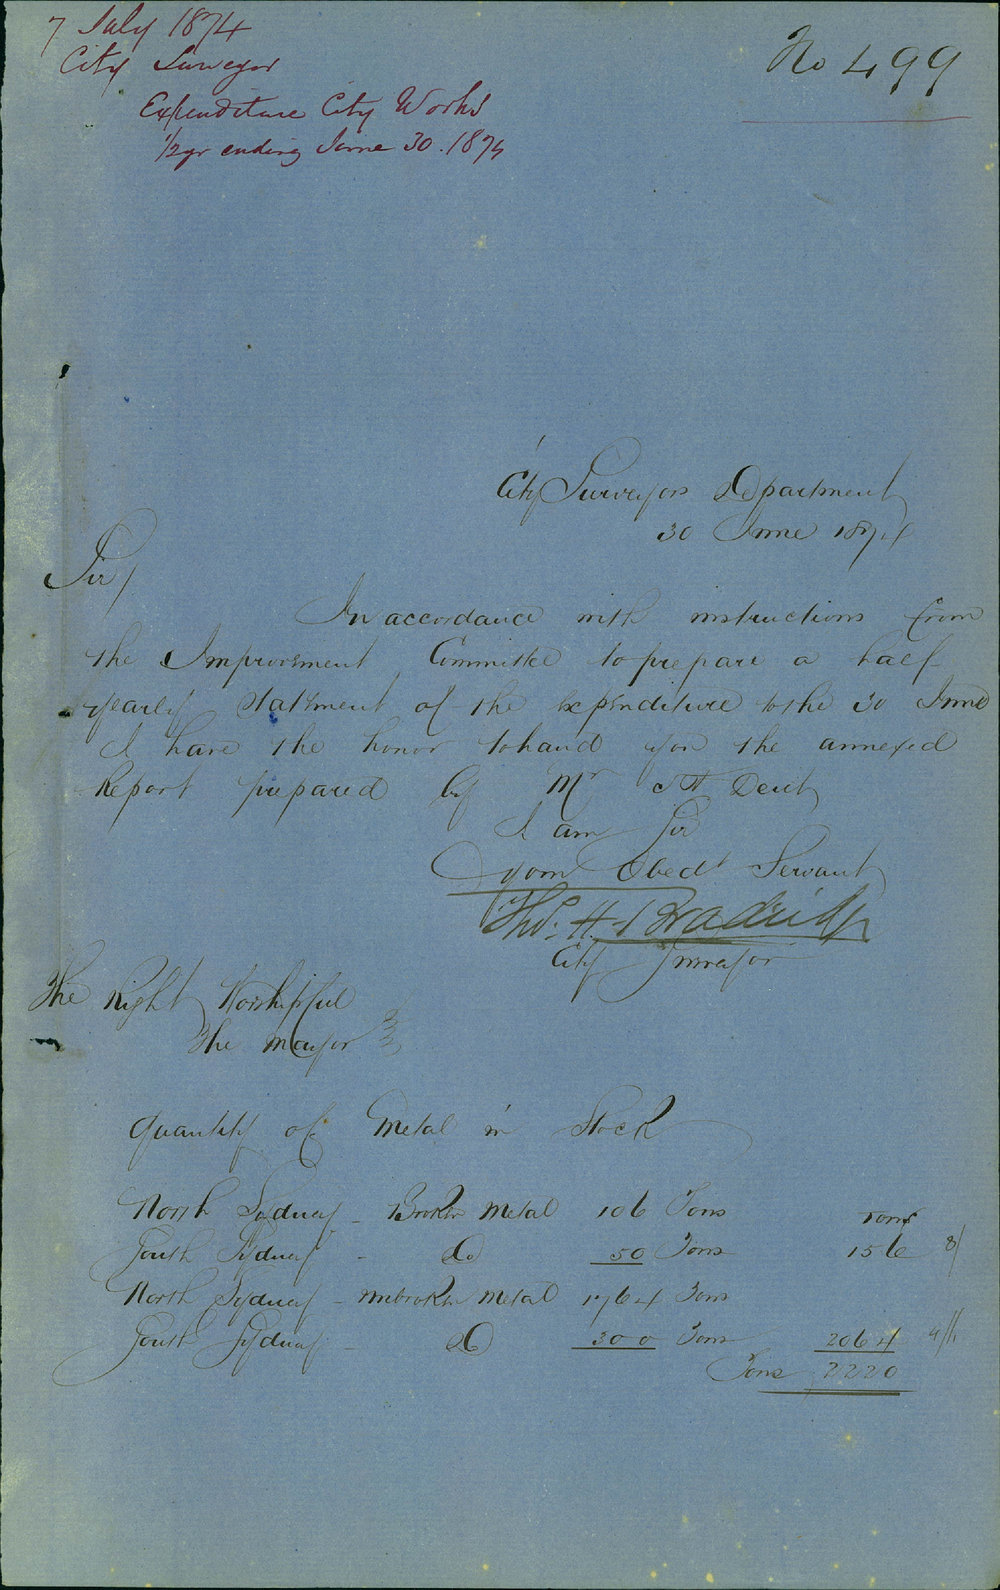 7 July 1874
City Surveyor
Expenditure City Works
1/2 yr ending June 30. 1874
No 499
City Surveyors Department
30 June 1874
Sir,
In accordance with instructions from
the Improvement Committee to prepare a half
yearly statement of the expenditure to the 30 June
I have the honor to hand you the annexed
Report prepared by Mr Dent
I am Sir
your Obedt Servant
Thos. H. Bradridge
City Surveyor
The Right Worshipful
The Mayor
Quantity of Metal in Stock
North Sydney - Broken Metal 106 Tons
Tons
South Sydney - Do 50 Tons 156 8/
North Sydney - unbroken Metal 1764 Tons
South Sydney - Do 300 Tons 2064
Tons 2220